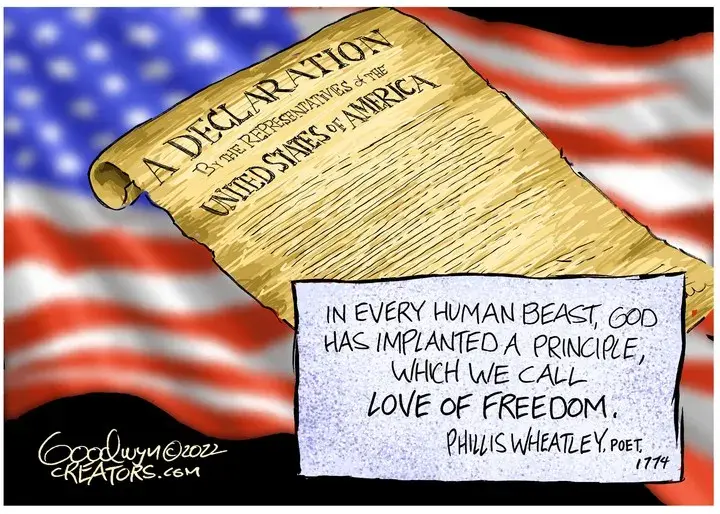 A DECLARATION
BY THE REPRESENTATIVES of THE
UNITED STATES OF AMERICA
IN EVERY HUMAN BEAST, GOD
HAS IMPLANTED A PRINCIPLE,
WHICH WE CALL
LOVE OF FREEDOM.
PHILLIS WHEATLEY, POET,
1774
Goodwyn©2022
CREATORS.COM